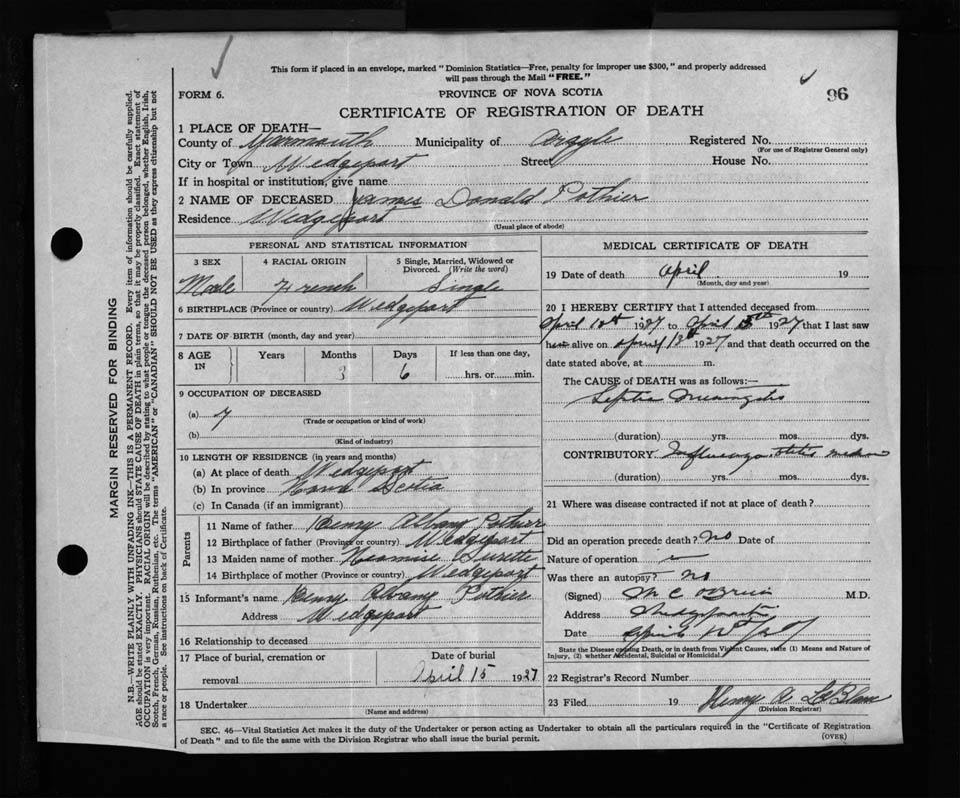 This form if placed in an envelope, marked "Dominion Statistics—Free, penalty for improper use $300," and properly addressed
will pass through the Mail "FREE."
FORM 6.
PROVINCE OF NOVA SCOTIA
96
CERTIFICATE OF REGISTRATION OF DEATH
1 PLACE OF DEATH—
County of Yarmouth Municipality of Argyle Registered No.
(For use of Registrar General only)
City or Town Wedgeport Street House No.
If in hospital or institution, give name
2 NAME OF DECEASED James Donald Pothier
Residence Wedgeport
(Usual place of abode)
PERSONAL AND STATISTICAL INFORMATION
3 SEX 4 RACIAL ORIGIN 5 Single, Married, Widowed or Divorced. (Write the word)
Male French Single
6 BIRTHPLACE (Province or country) Wedgeport
7 DATE OF BIRTH (month, day and year)
8 AGE IN Years Months Days If less than one day,
3 6 hrs. or min.
9 OCCUPATION OF DECEASED
(a)
(Trade or occupation or kind of work)
(b)
(Kind of industry)
10 LENGTH OF RESIDENCE (in years and months)
(a) At place of death Wedgeport
(b) In province Nova Scotia
(c) In Canada (if an immigrant)
Parents
11 Name of father Henry Albany Pothier
12 Birthplace of father (Province or country) Wedgeport
13 Maiden name of mother Surette
14 Birthplace of mother (Province or country) Wedgeport
15 Informant's name Henry Albany Pothier
Address Wedgeport
16 Relationship to deceased
17 Place of burial, cremation or removal
Date of burial
April 15 1927
18 Undertaker
(Name and address)
MEDICAL CERTIFICATE OF DEATH
19 Date of death April 19
(Month, day and year)
20 I HEREBY CERTIFY that I attended deceased from
April 12th 1927 to April 1927 that I last saw
h alive on April 13th 1927 and that death occurred on the
date stated above, at m.
The CAUSE of DEATH was as follows:—
Septic Meningitis
(duration) yrs. mos. dys.
CONTRIBUTORY Influenza. media
(duration) yrs. mos. dys.
21 Where was disease contracted if not at place of death?
Did an operation precede death? no Date of
Nature of operation
Was there an autopsy? no
(Signed) M C O'Brien M.D.
Address Wedgeport
Date April
State the Disease causing Death, or in death from Violent Causes, state (1) Means and Nature of
Injury, (2) whether Accidental, Suicidal or Homicidal.
22 Registrar's Record Number
23 Filed 19 Henry A LeBlanc
(Division Registrar)
SEC. 46—Vital Statistics Act makes it the duty of the Undertaker or person acting as Undertaker to obtain all the particulars required in the "Certificate of Registration
of Death" and to file the same with the Division Registrar who shall issue the burial permit.
(OVER)
MARGIN RESERVED FOR BINDING
N.B.—WRITE PLAINLY WITH UNFADING INK—THIS IS A PERMANENT RECORD. Every item of information should be carefully supplied.
AGE should be stated EXACTLY. PHYSICIANS should STATE CAUSE OF DEATH in plain terms, so that it may be properly classified. Exact statement of
OCCUPATION is very important. RACIAL ORIGIN will be described by stating to what people or tongue the deceased person belonged, whether English, Irish,
Scotch, French, German, Russian, Ruthenian, etc. The terms "AMERICAN" or "CANADIAN" SHOULD NOT BE USED as they express citizenship but not
a race or people. See instructions on back of Certificate.